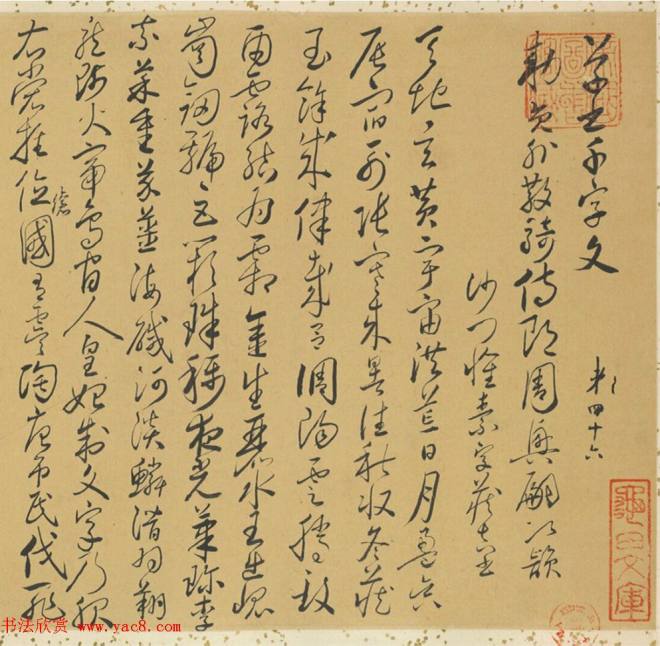 草書千字文 第四十六
勅員外散騎侍郎周興嗣次韻
沙門懷素字藏真
天地玄黃宇宙洪荒日月盈昃
辰宿列張寒來暑往秋收冬藏
閏餘成律歲呂調陽雲騰致
雨露結為霜金生麗水玉出崑
崗劍號巨闕珠稱夜光菓珍李
柰菜重芥薑海鹹河淡鱗潛羽翔
龍師火帝鳥官人皇始制文字乃服
衣裳推位讓國有虞陶唐弔民伐罪
书法欣赏 www.yac8.com